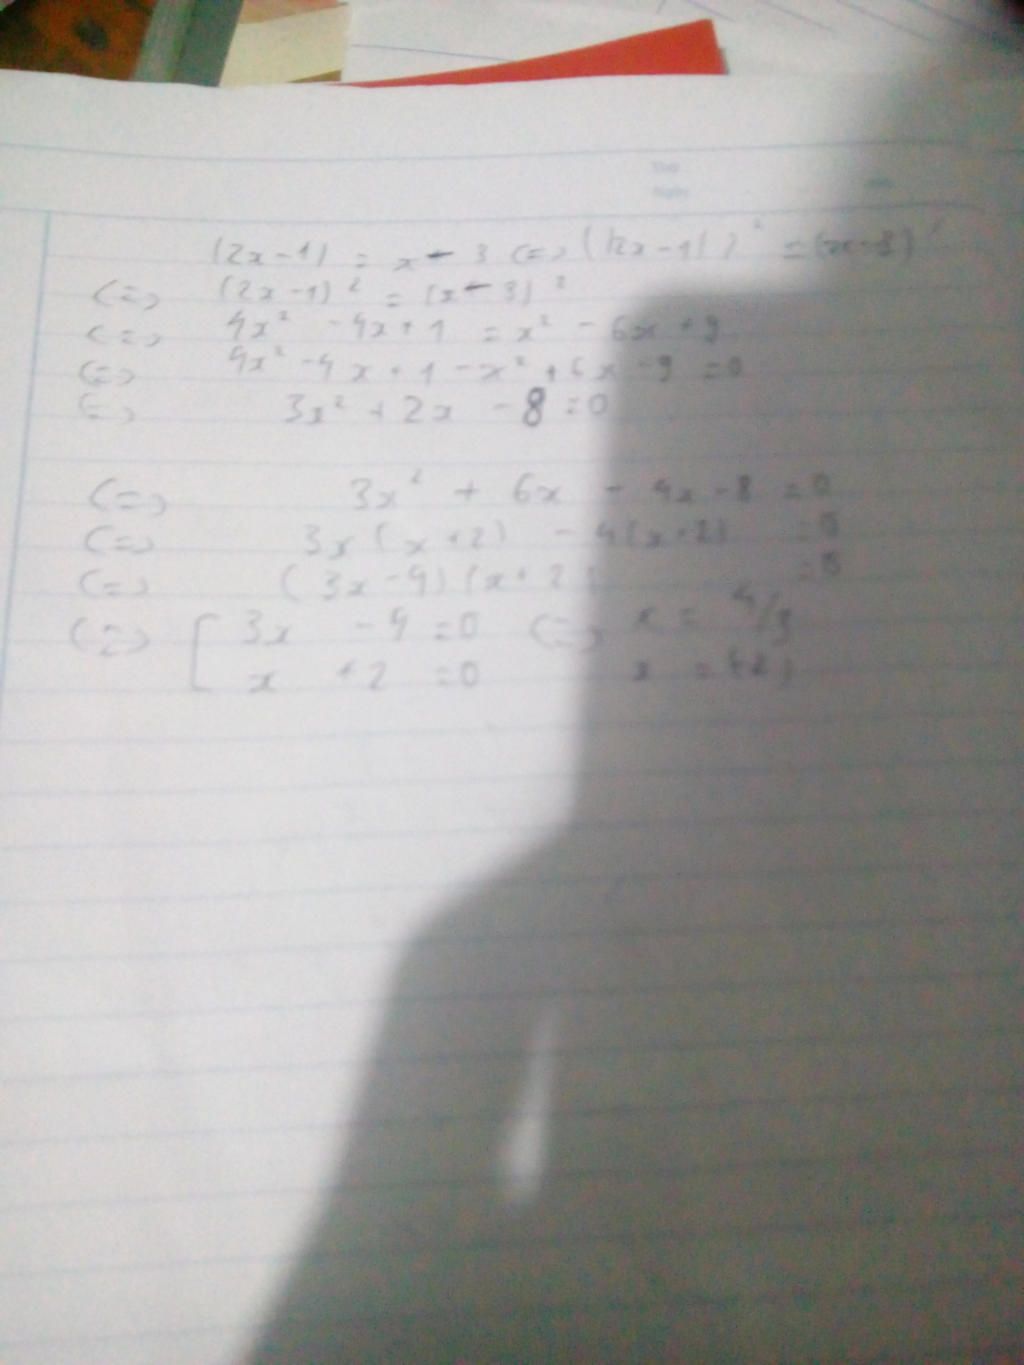 Thứ
Ngày
|2x-1| = x-3 <=> (|2x-1|)² = (x-3)²
<=> (2x-1)² = (x-3)²
<=> 4x² -4x+1 = x² - 6x+9
<=> 4x² -4x+1-x²+6x-9 =0
<=> 3x² +2x -8=0
<=> 3x² + 6x - 4x-8 =0
<=> 3x(x+2) -4(x+2) =0
<=> (3x-4)(x+2) =0
<=> [ 3x -4 =0 <=> x = 4/3
x +2 =0